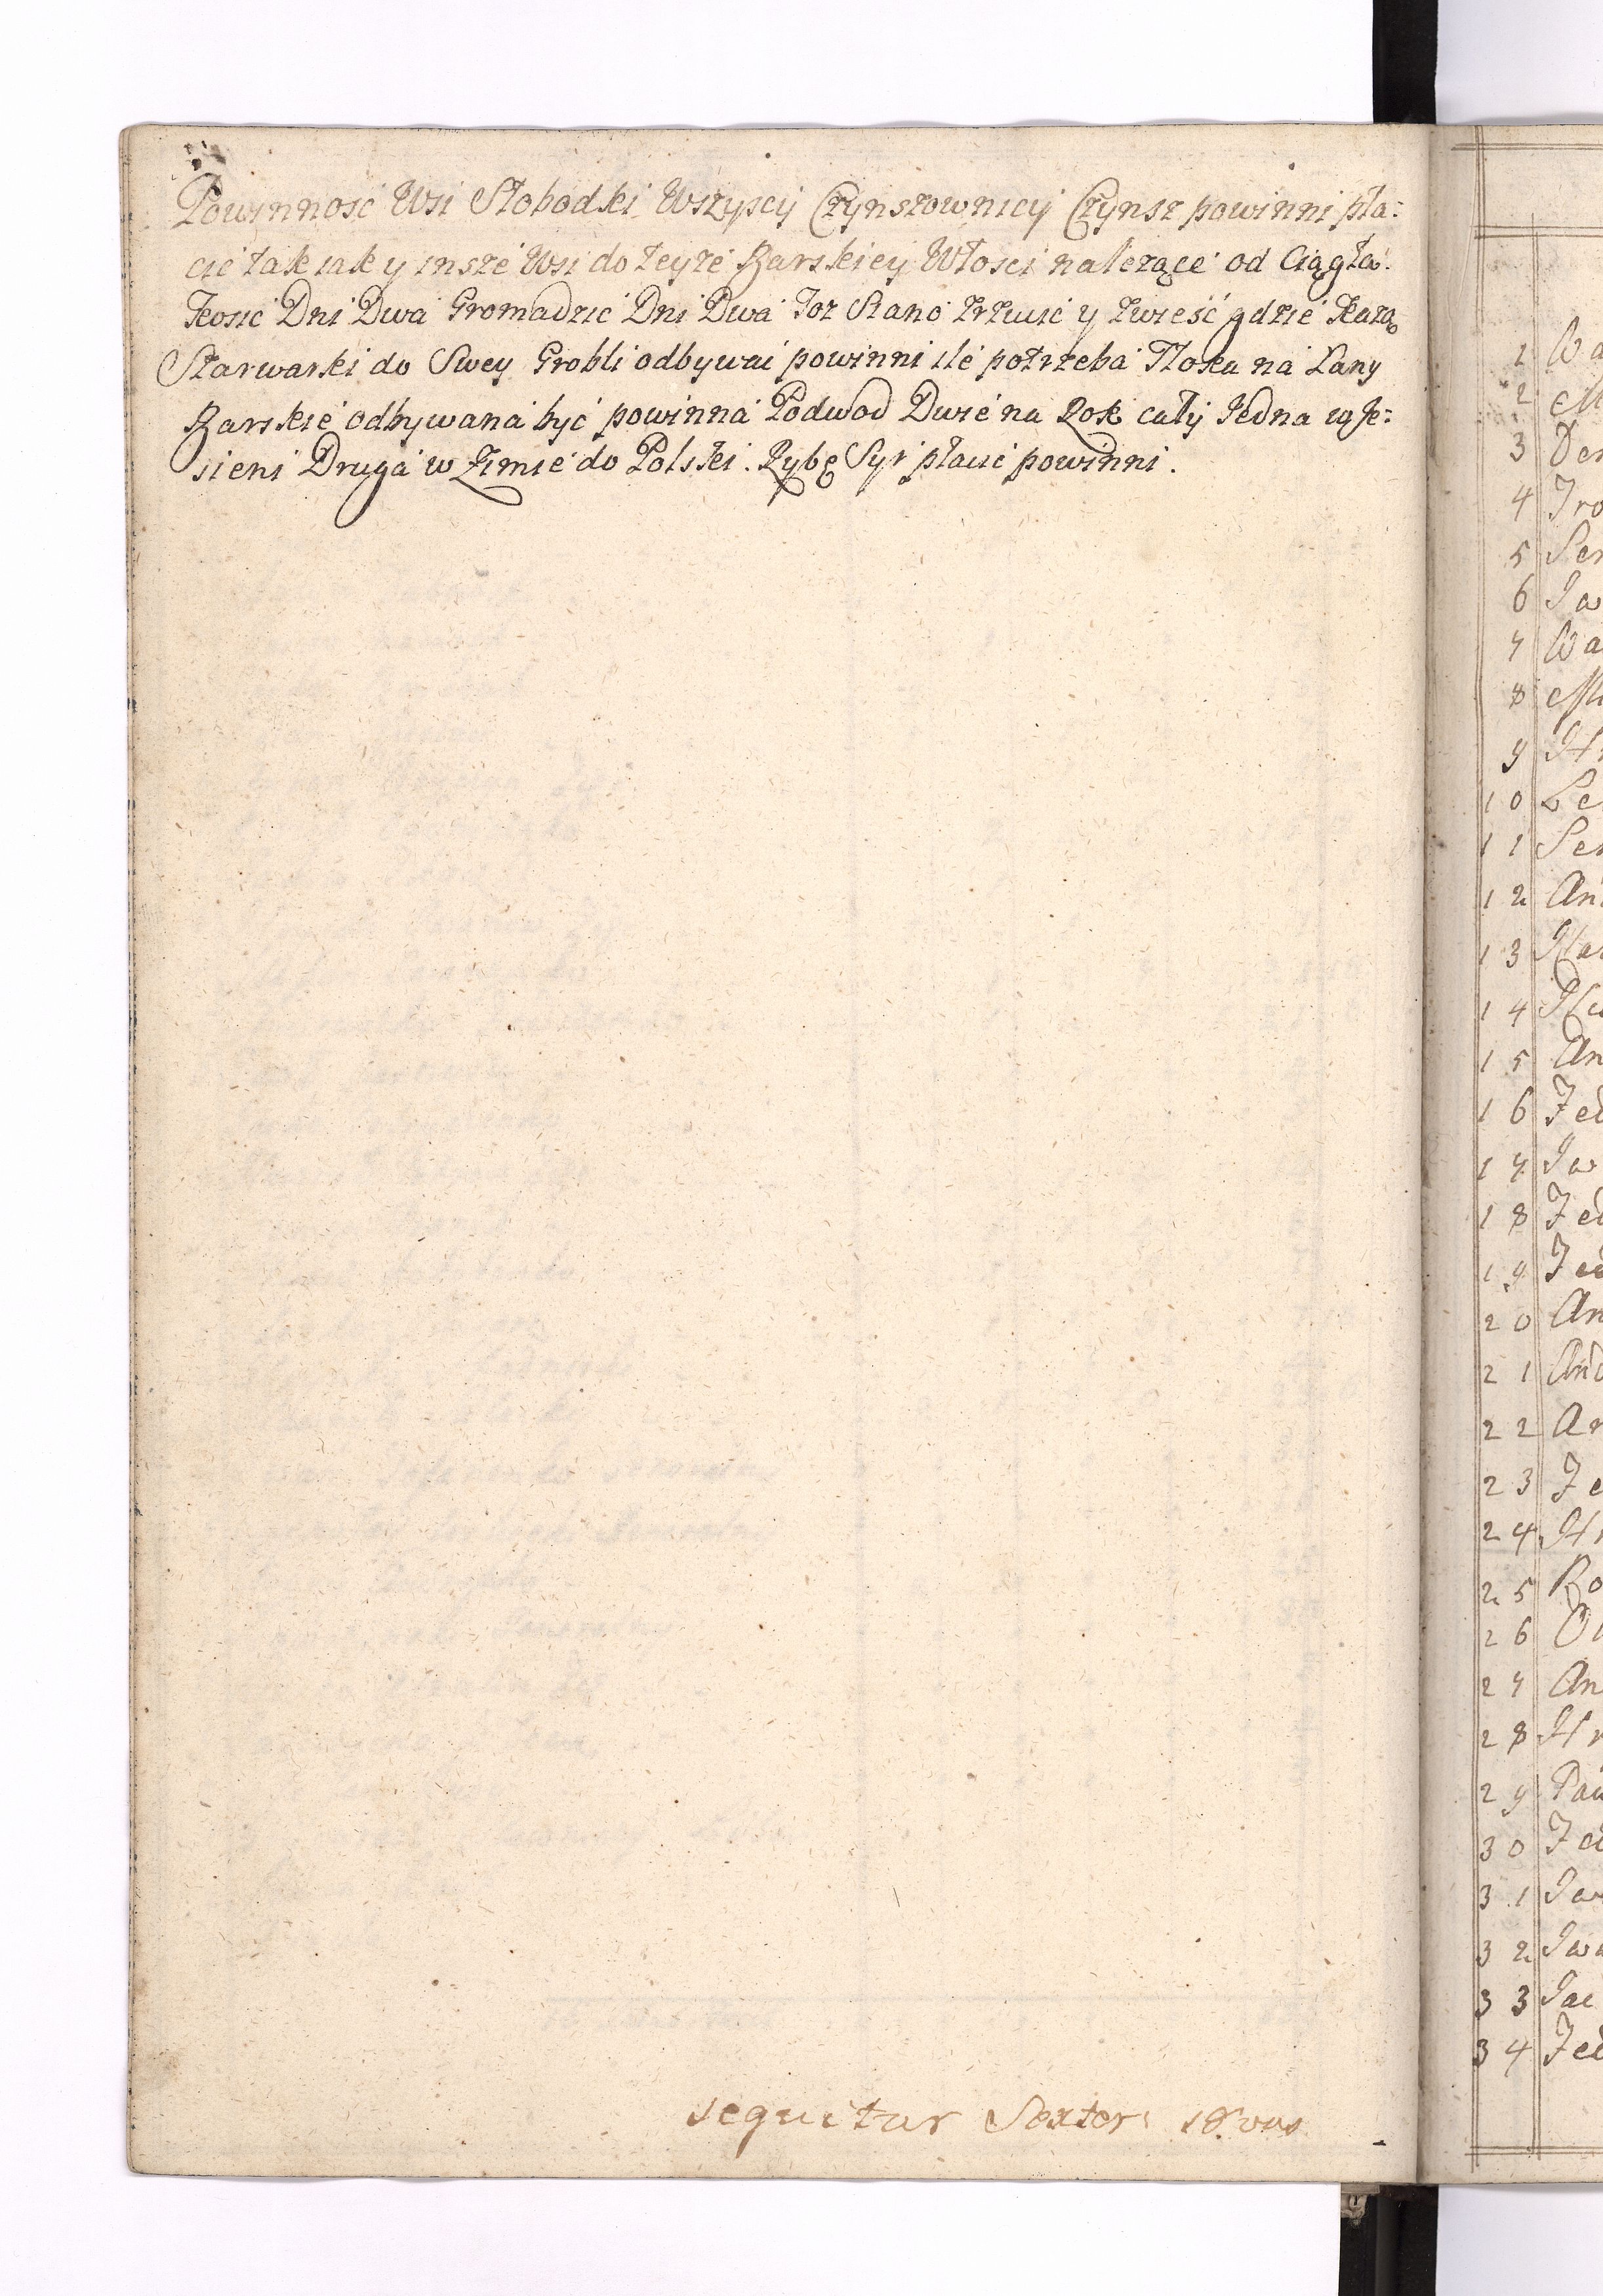 Powinnosc Wsi Słobodki Wszyscy Czynszownicy Czynsz powinni pła:
cić tak iak y insze Wsi do teyże Barskiey Włosci nalezące od Ciągła.
Kosić Dni Dwa Gromadzic Dni Dwa Toz Siano zrzucić y zwieść gdzie Kazą
Szarwarki do Swey Grobli odbywac powinni ile potrzeba Tłoka na Łany
Barskie odbywana być powinna Podwod Dwie na Rok cały Jedna w Je:
sieni Druga w Zimie do Polski. Rybę Syr płacić powinni.
sequitur Sexter 18vus
1 Wa
2 M
3 Der
4 Iro
5 Se
6 Iw
7 Wa
8 M
9 H
10 Le
11 Se
12 An
13 Ha
14
15 An
16 Fed
17 Iw
18 Fed
19 Fed
20 An
21 And
22 An
23 Fe
24 H
25 Bo
26
27 An
28 Hr
29 Paw
30 Fed
31 Iw
32 Iwa
33 Iac
34 Fed